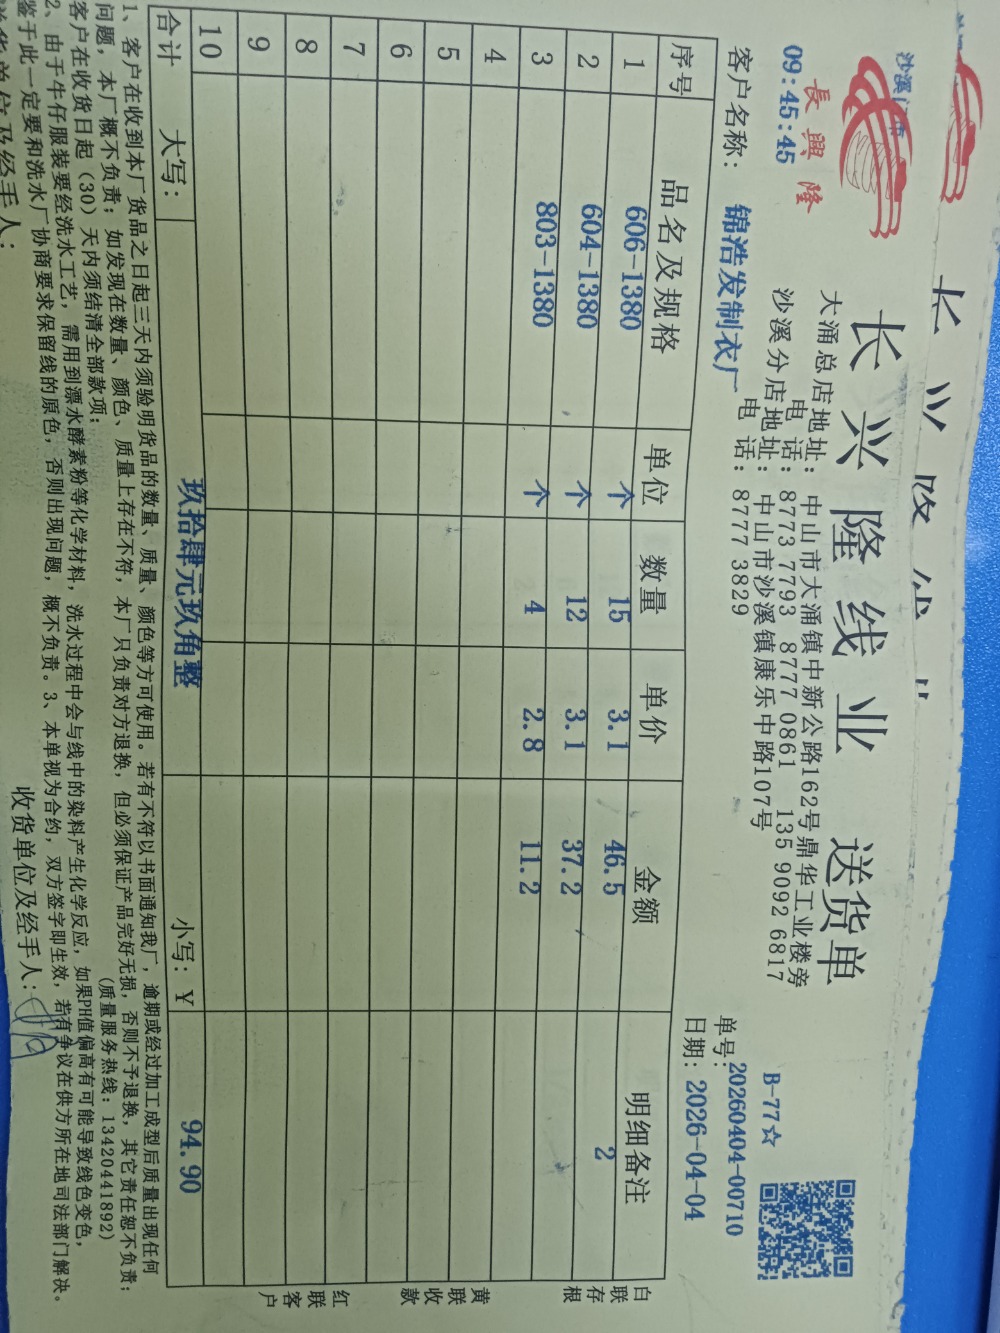 长兴隆
长兴隆线业 送货单
沙溪
長興隆
09:45:45
大涌总店地址: 中山市大涌镇中新公路162号鼎华工业楼旁
电 话: 8773 7793 8777 0861 135 9092 6817
沙溪分店地址: 中山市沙溪镇康乐中路107号
电 话: 8777 3829
B-77☆
单号: 20260404-00710
客户名称: 锦浩发制衣厂
日期: 2026-04-04
序号 品名及规格 单位 数量 单价 金额 明细备注
1 606-1380 个 15 3.1 46.5
2 604-1380 个 12 3.1 37.2 2
3 803-1380 个 4 2.8 11.2
4
5
6
7
8
9
10
合计 大写: 玖拾肆元玖角整 小写: ¥ 94.90
白联存根
黄联收款
红联客户
1、客户在收到本厂货品之日起三天内须验明货品的数量、质量、颜色等方可使用。若有不符以书面通知我厂,逾期或经过加工成型后质量出现任何
问题,本厂概不负责;如发现在数量、颜色、质量上存在不符,本厂只负责对方退换,但必须保证产品完好无损,否则不予退换,其它责任恕不负责;
客户在收货日起(30)天内须结清全部款项; (质量服务热线:13420441892)
2、由于牛仔服装要经洗水工艺,需用到漂水酵素粉等化学材料,洗水过程中会与线中的染料产生化学反应,如果PH值偏高有可能导致线色变色,
鉴于此一定要和洗水厂协商要求保留线的原色,否则出现问题,概不负责。3、本单视为合约,双方签字即生效,若有争议在供方所在地司法部门解决。
送货单位及经手人: 收货单位及经手人: